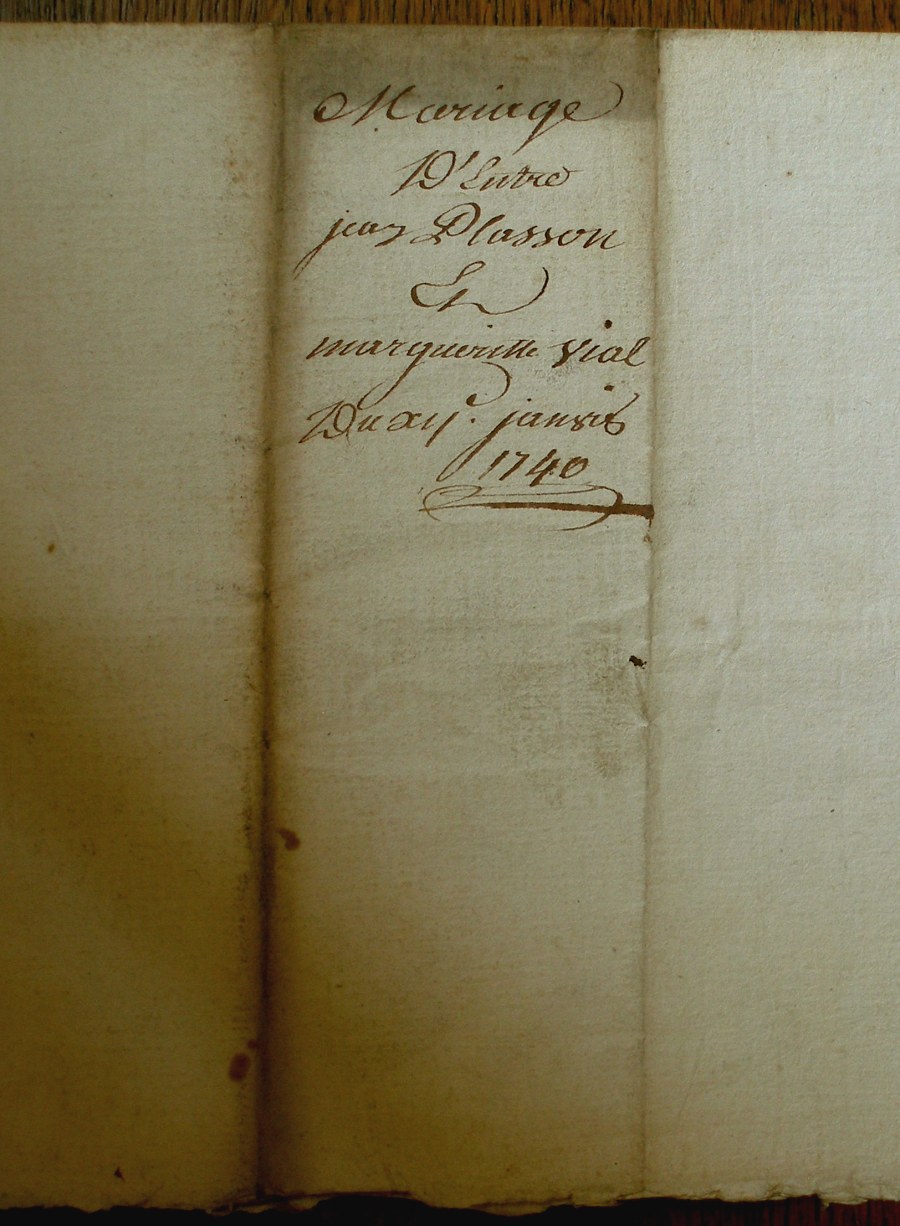 Mariage
D'Entre
jean Plasson
Et
margueritte vial
Du xij.e janvier
1740